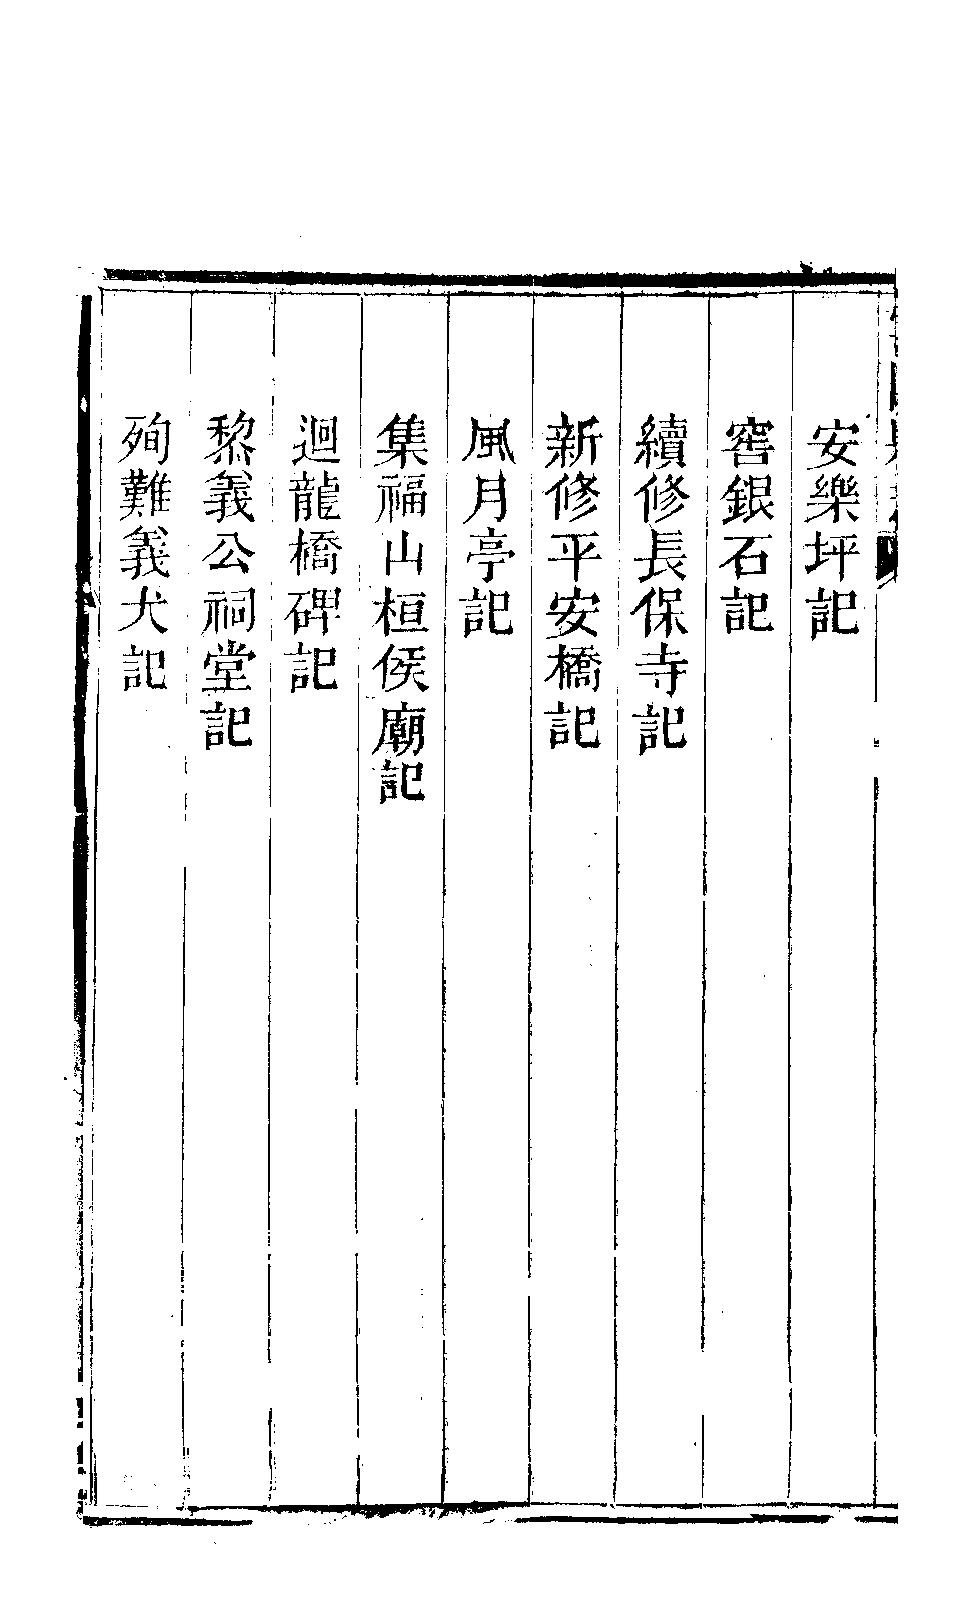 安樂坪記
窖銀石記
續修長保寺記
新修平安橋記
風月亭記
集福山桓侯廟記
迴龍橋碑記
黎義公祠堂記
殉難義犬記